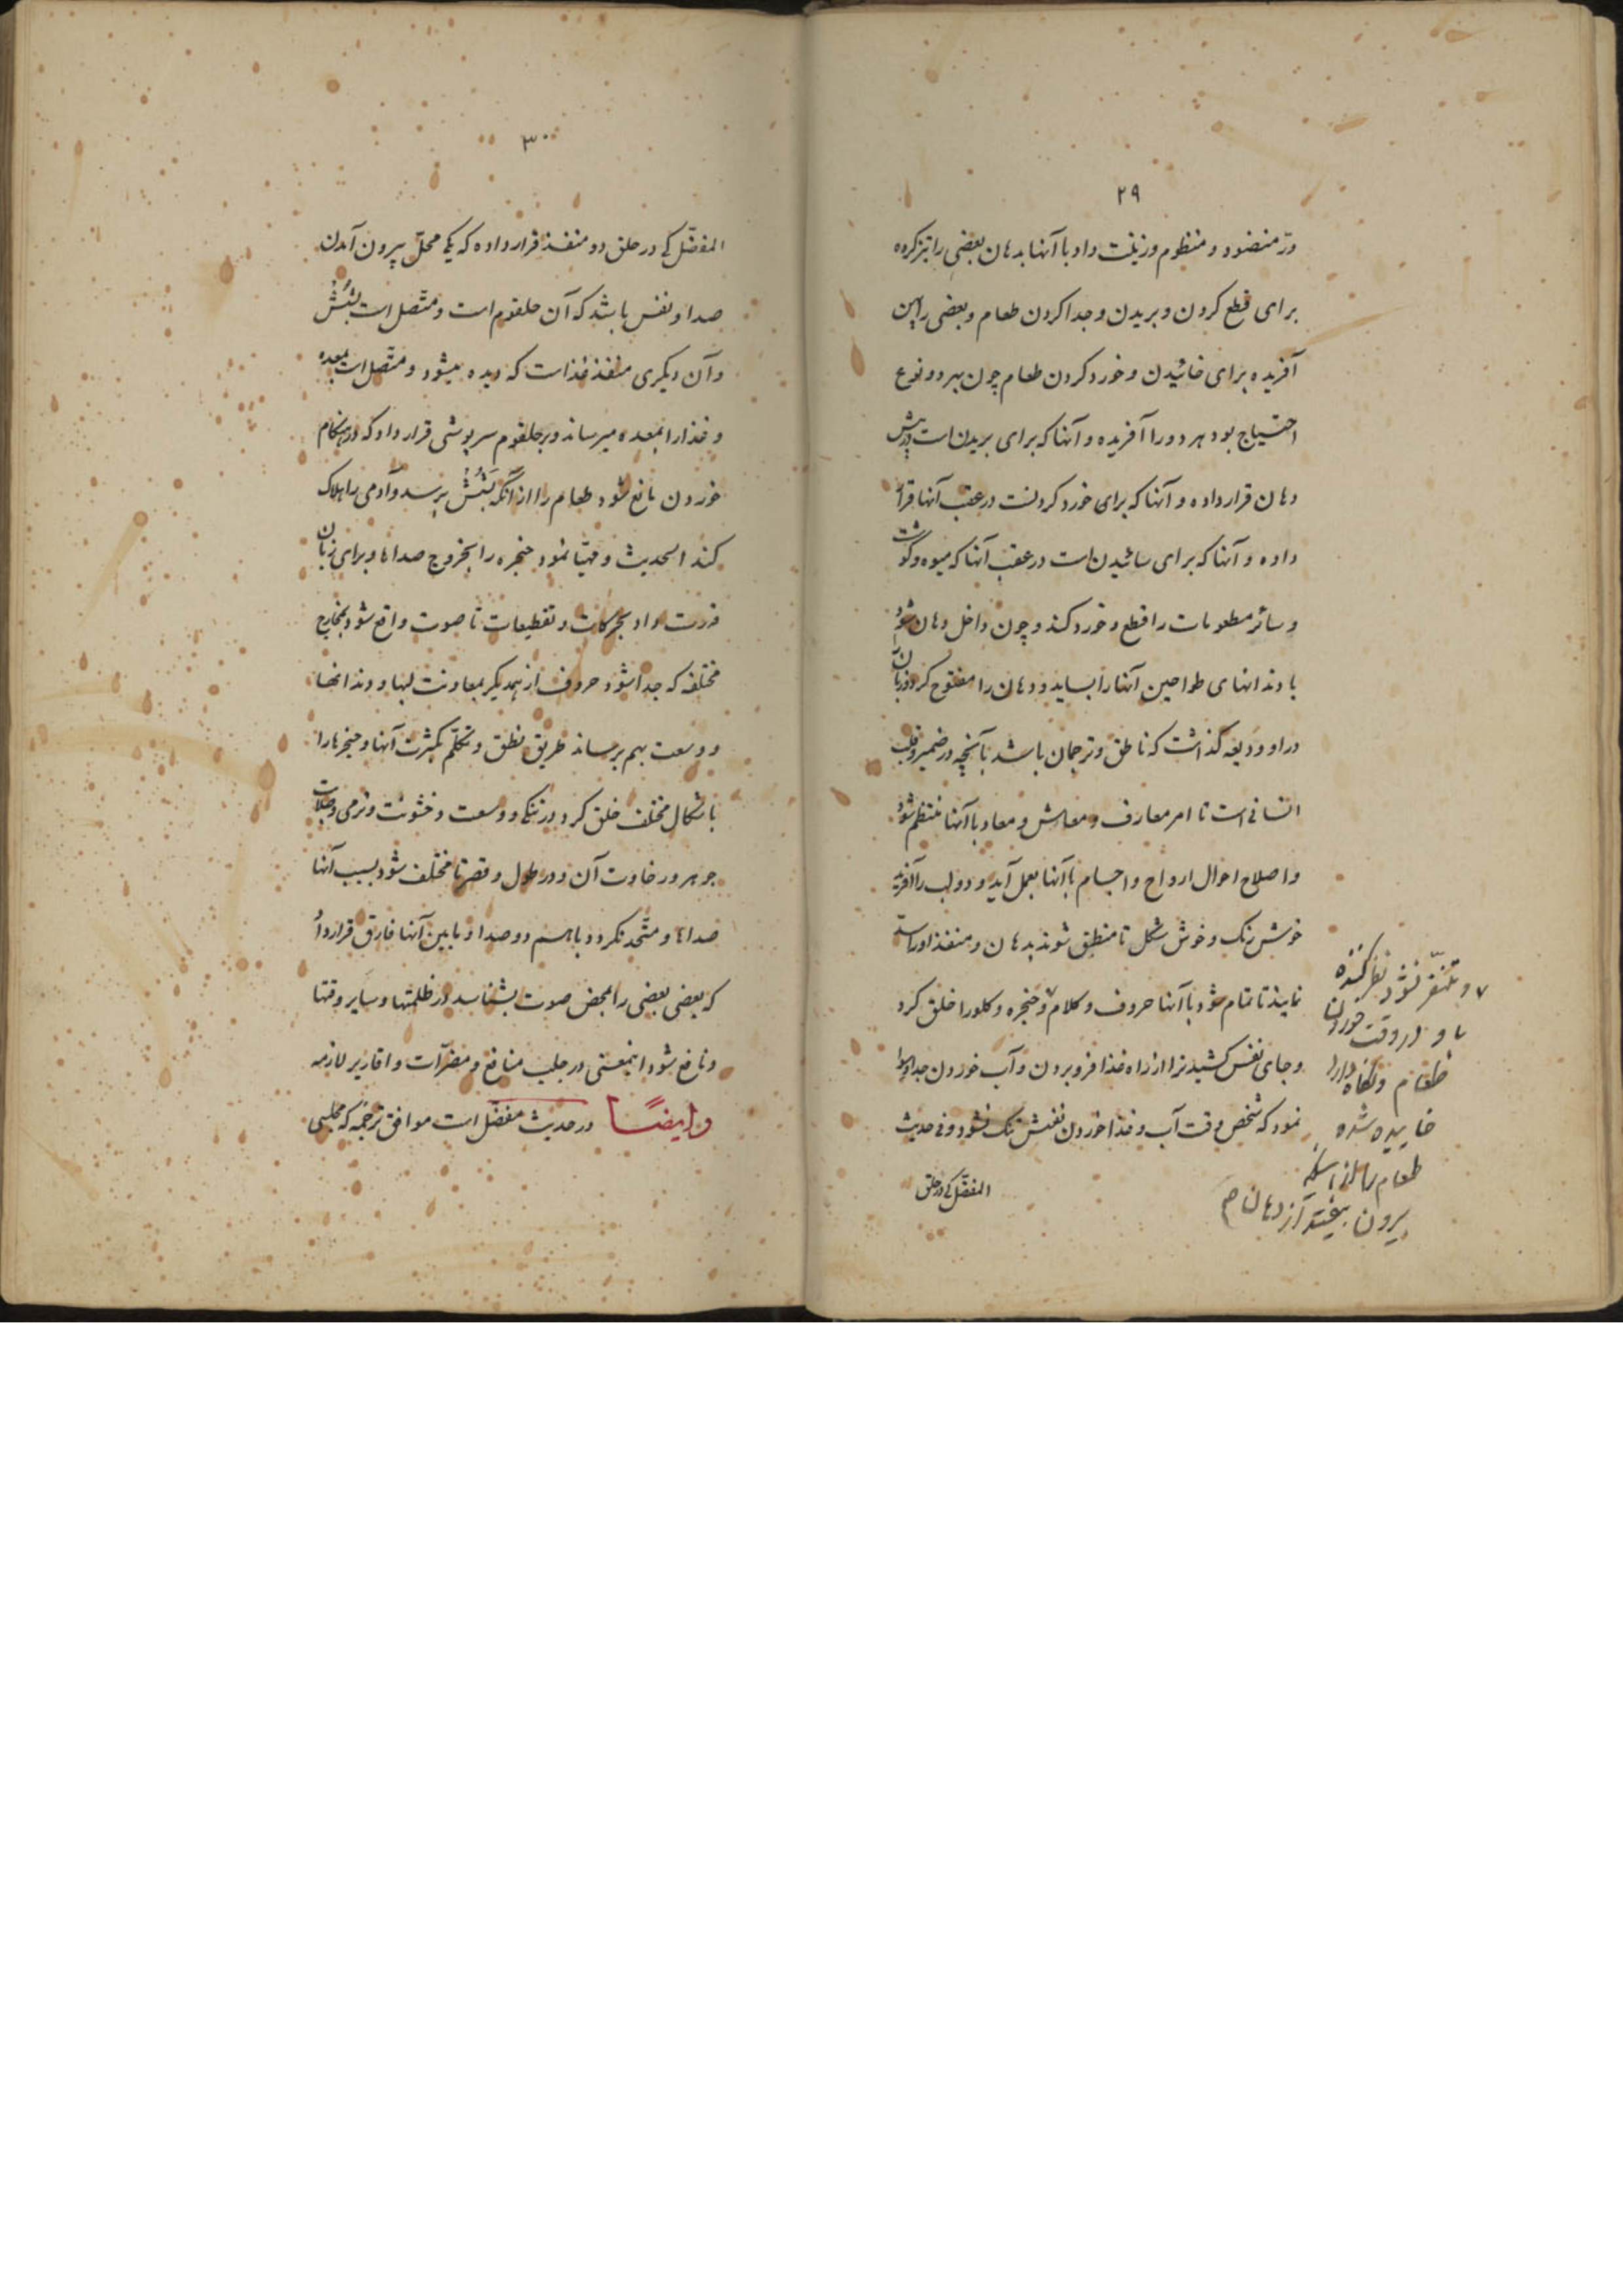 ۲۹
درّ منضود و منظوم و زینت داد با آنها بدهان بعضی را تیز کرده
برای قطع کردن و بریدن و جدا کردن طعام و بعضی را پهن
آفریده برای خائیدن و خورد کردن طعام چون بهر دو نوع
احتیاج بود هر دو را آفریده و آنها که برای بریدن است در پیش
دهان قرار داده و آنها که برای خورد کردنست در عقب آنها قرار
داده و آنها که برای سائیدن است در عقب آنها که میوه و گوشت
و سائر مطعومات را قطع و خورد کند و چون داخل دهان شود
با دندانهای طواحین آنها را بساید و دهان را مفتوح کرد و زبان
در او ودیعه گذاشت که ناطق و ترجمان باشد بآنچه در ضمیر و قلب
انسانی است تا امر معارف و معاش و معاد با آنها منتظم شود
و اصلاح احوال ارواح و اجسام با آنها بعمل آید و دو لب را آفریده
خوش رنگ و خوش شکل تا منطبق شوند بدهان و منفذ او را سدّ
نمایند تا تمام شود با آنها حروف و کلام و حنجره و گلو را خلق کرد
و جای نفس کشیدنرا از راه غذا فرو بردن و آب خوردن جدا
نمود که شخص وقت آب و غذا خوردن نفسش تنگ نشود و فی حدیث
المفضّل که در حلق
و متنفّر نشود نظر کننده
باو در وقت خوردن
طعام و نگاه دارد
خاییده شده
طعام را از اینکه
بیرون بیفتد از دهان م
۳۰
المفضّل که در حلق دو منفذ قرار داده که یکی محلّ بیرون آمدن
صدا و نفس باشد که آن حلقوم است و متّصل است بشُش
و آن دیگری منفذ غذاست که دیده میشود و متّصل است بمعده
و غذا را بمعده میرساند و بر حلقوم سرپوشی قرار داد که در هنگام
خوردن مانع شود طعام را از آنکه بشُش برسد و آدمی را هلاک
کند الحدیث و مهیّا نمود حنجره را بخروج صداها و برای زبان
قدرت داد بحرکات و تقطیعات تا صوت واقع شود بمخارج
مختلفه که جدا شود حروف از همدیگر بمعاونت لبها و دندانها
و وسعت بهم برساند طریق نطق و تکلّم بکثرت آنها و حنجرها را
باشکال مختلف خلق کرد در تنگی و وسعت و خشونت و نرمی و صلابت
جوهر و رخاوت آن و در طول و قصر تا مختلف شود بسبب آنها
صداها و متّحد نگردد باهم دو صدا و مابین آنها فارق قرار داد
که بعضی بعضی را بمحض صوت بشناسد در ظلمتها و سایر وقتها
و نافع شود اینمعنی در جلب منافع و مضرّات و اقاریر لازمه
وایضًا در حدیث مفضّل است موافق ترجمه که مجلسی